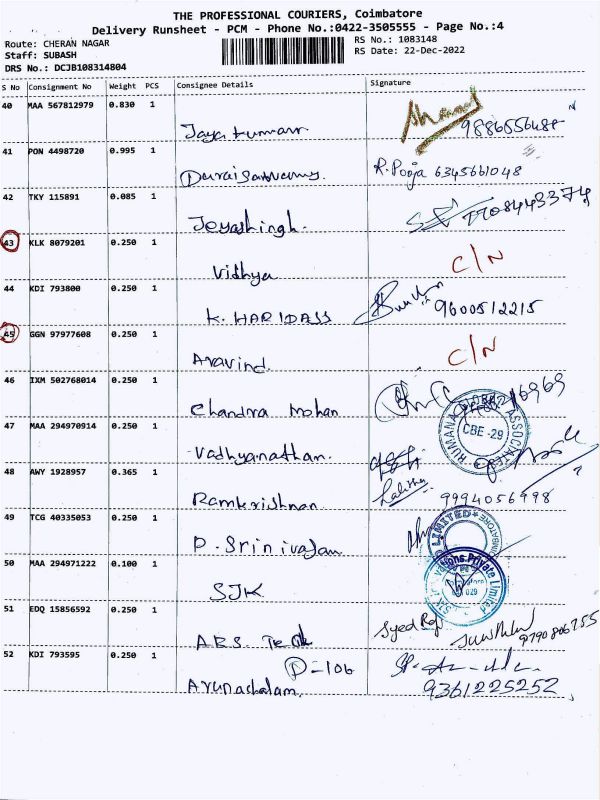 THE PROFESSIONAL COURIERS, Coimbatore
Delivery Runsheet - PCM - Phone No.:0422-3505555 - Page No.:4
Route: CHERAN NAGAR
RS No.: 1083148
Staff: SUBASH
RS Date: 22-Dec-2022
DRS No.: DCJB108314804
S No Consignment No Weight PCS Consignee Details Signature
40 MAA 567812979 0.830 1
Jayakumar
41 PON 4498720 0.995 1
Duraisamy R. Pooja 6345661048
42 TKY 115891 0.085 1
Jeyashingh.
43 KLK 8079201 0.250 1
Vidhya C/N
44 KDI 793800 0.250 1
K. HARIDASS 9600512215
45 GGN 97977608 0.250 1
Aravind. C/N
46 IXM 502768014 0.250 1
Chandra mohan
47 MAA 294970914 0.250 1
Vadhyanathan. CBE-29
48 AWY 1928957 0.365 1
Ramkrishnan Lalitha 9994056998
49 TCG 40335053 0.250 1
P. Srinivasan LIMITED
50 MAA 294971222 0.100 1
SJK Private Limited
51 EDQ 15856592 0.250 1
Syed 9790806755
A.R.S.
52 KDI 793595 0.250 1
D-106
Arunachalam. 9361225252